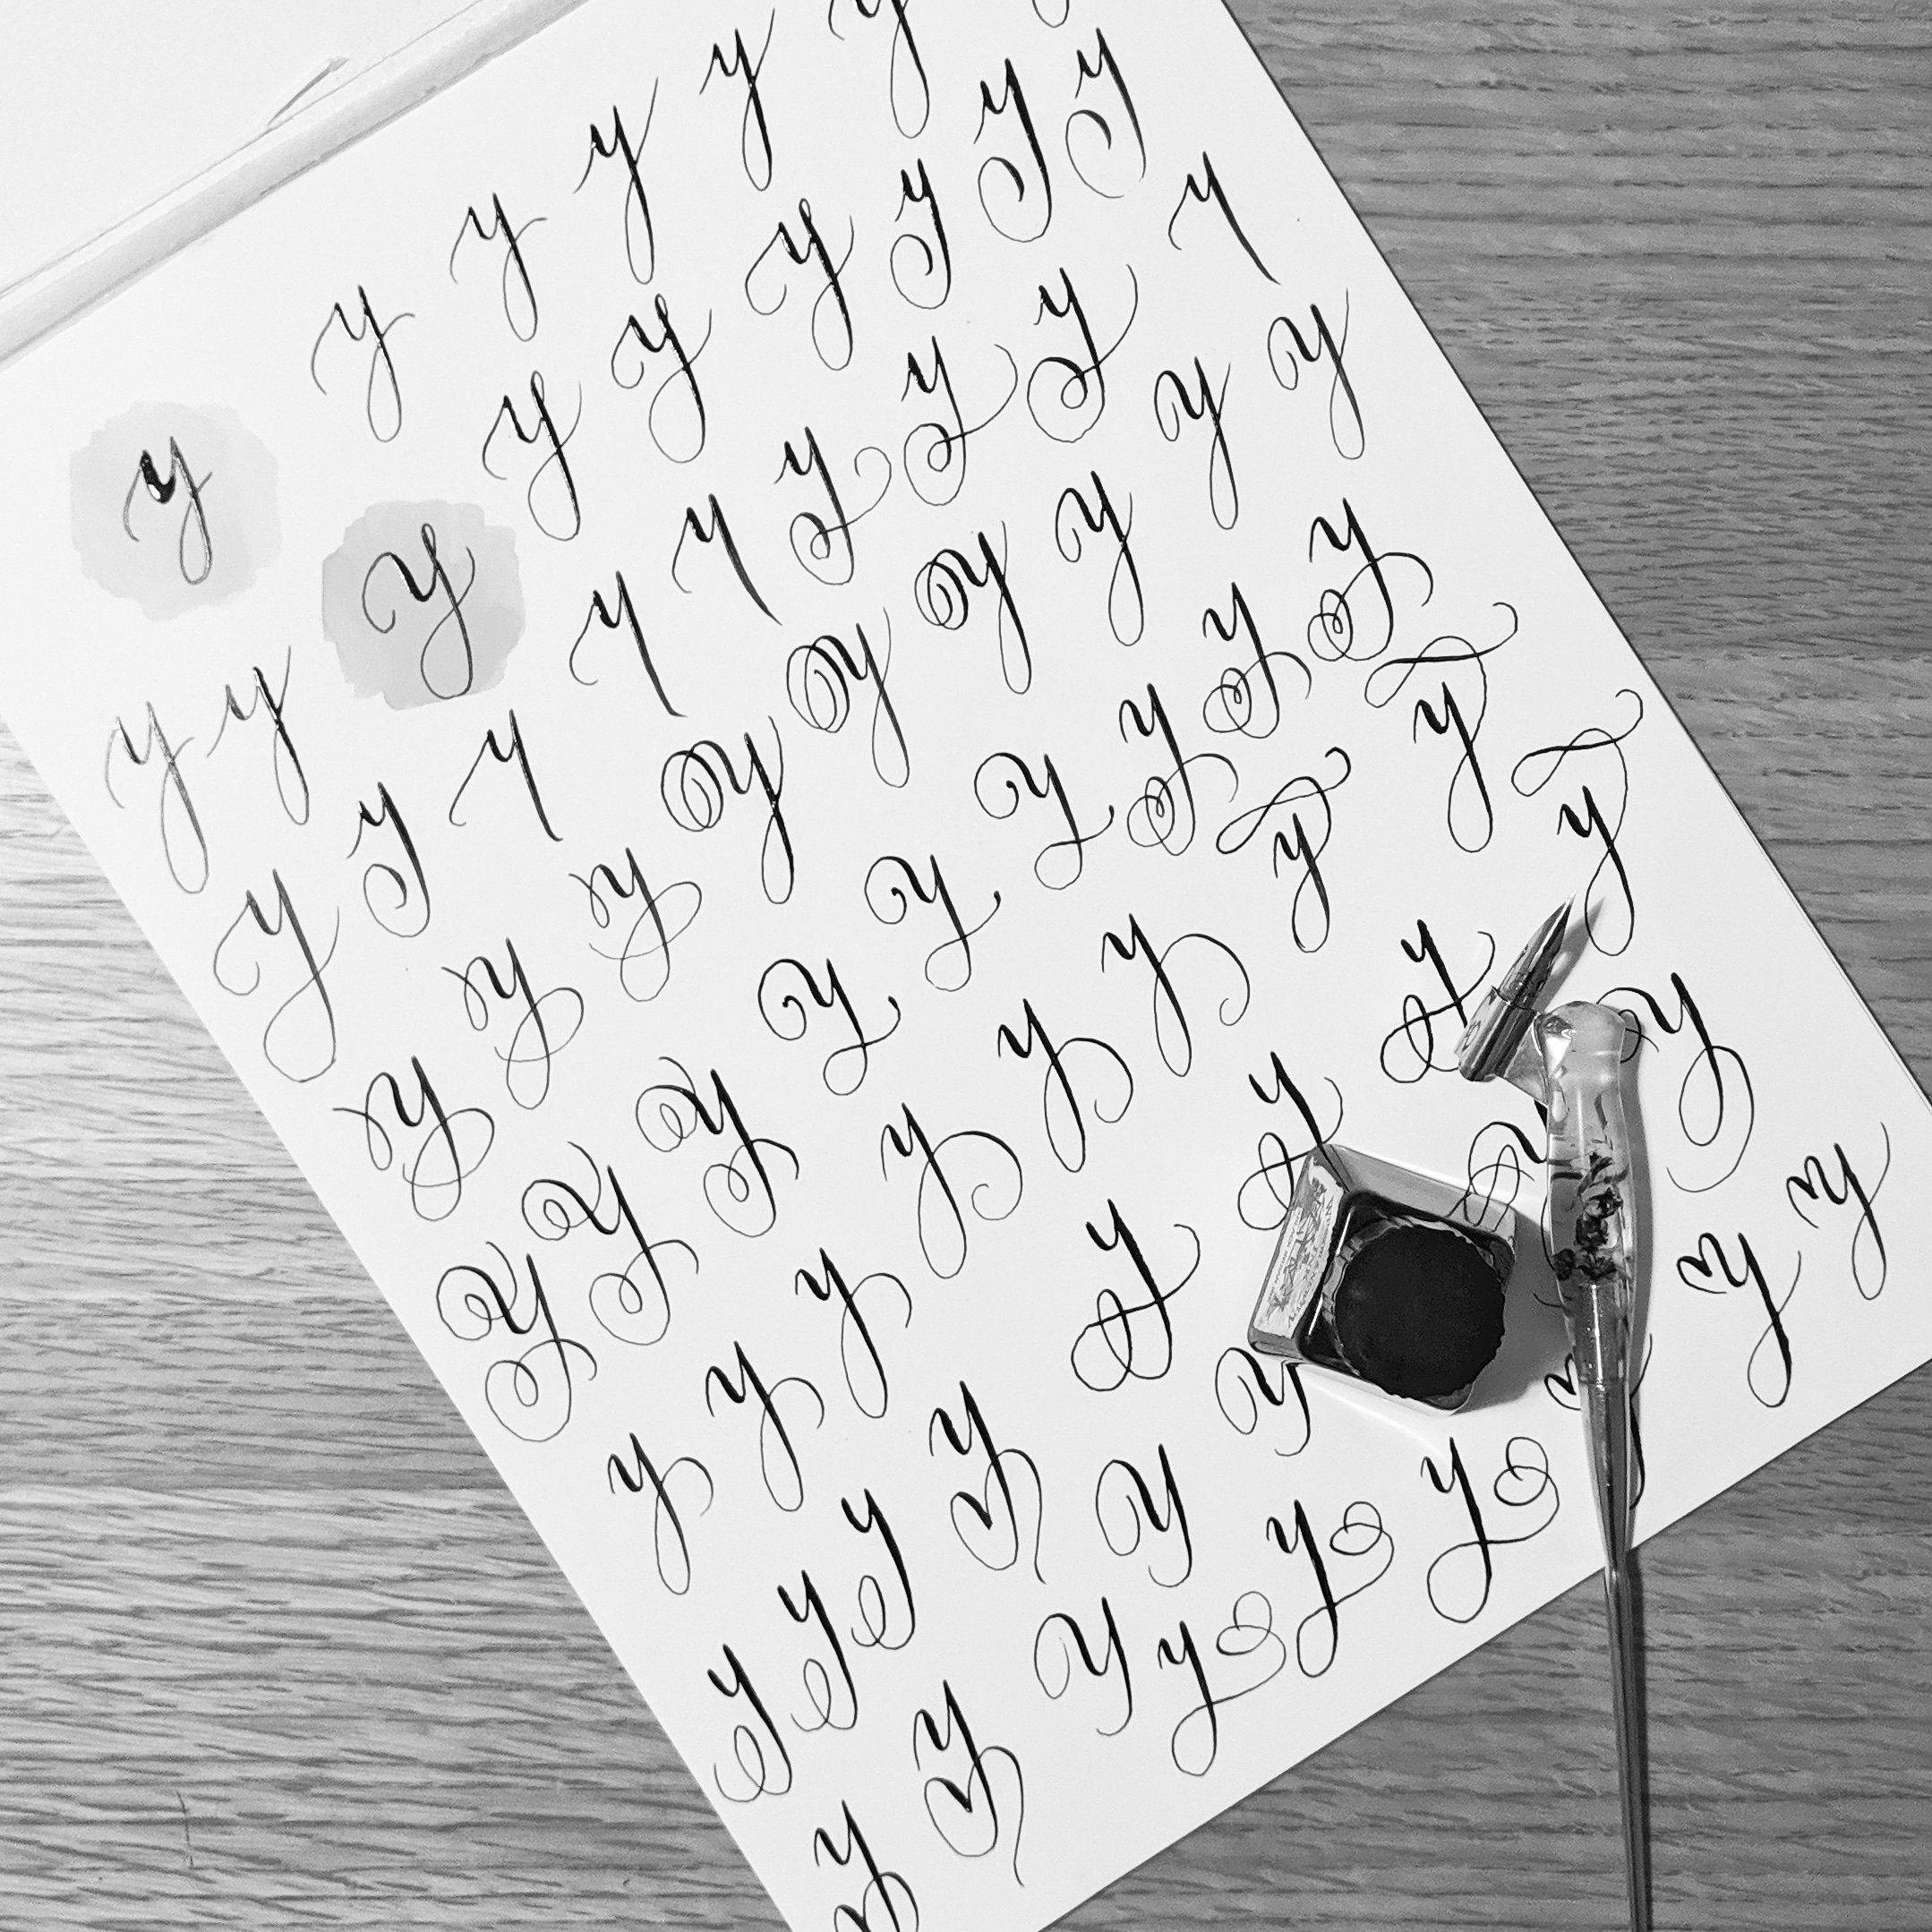 y y y y y y
y y y y y y y y y
y y y y y y y y y
y y y y y y y y y
y y y y y y y y y
y y y y y y y y
y y y y y y y y
y y y y y y
y y y y y